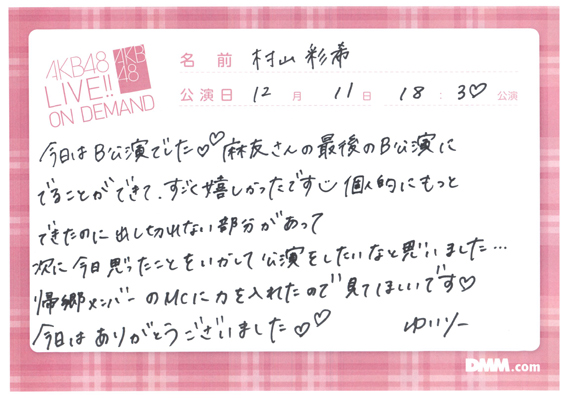 AKB48
LIVE!!
ON DEMAND
AKB
48
名前 村山彩希
公演日 12月 11日 18:30 公演
今日はB公演でした♡♡麻友さんの最後のB公演に
でることができて、すごく嬉しかったです 個人的にもっと
できたのに出し切れない部分があって
次に今日思ったことをいかして公演をしたいなと思いました…
帰郷メンバーのMCに力を入れたので見てほしいです♡
今日はありがとうございました♡♡ ゆいりー
DMM.com